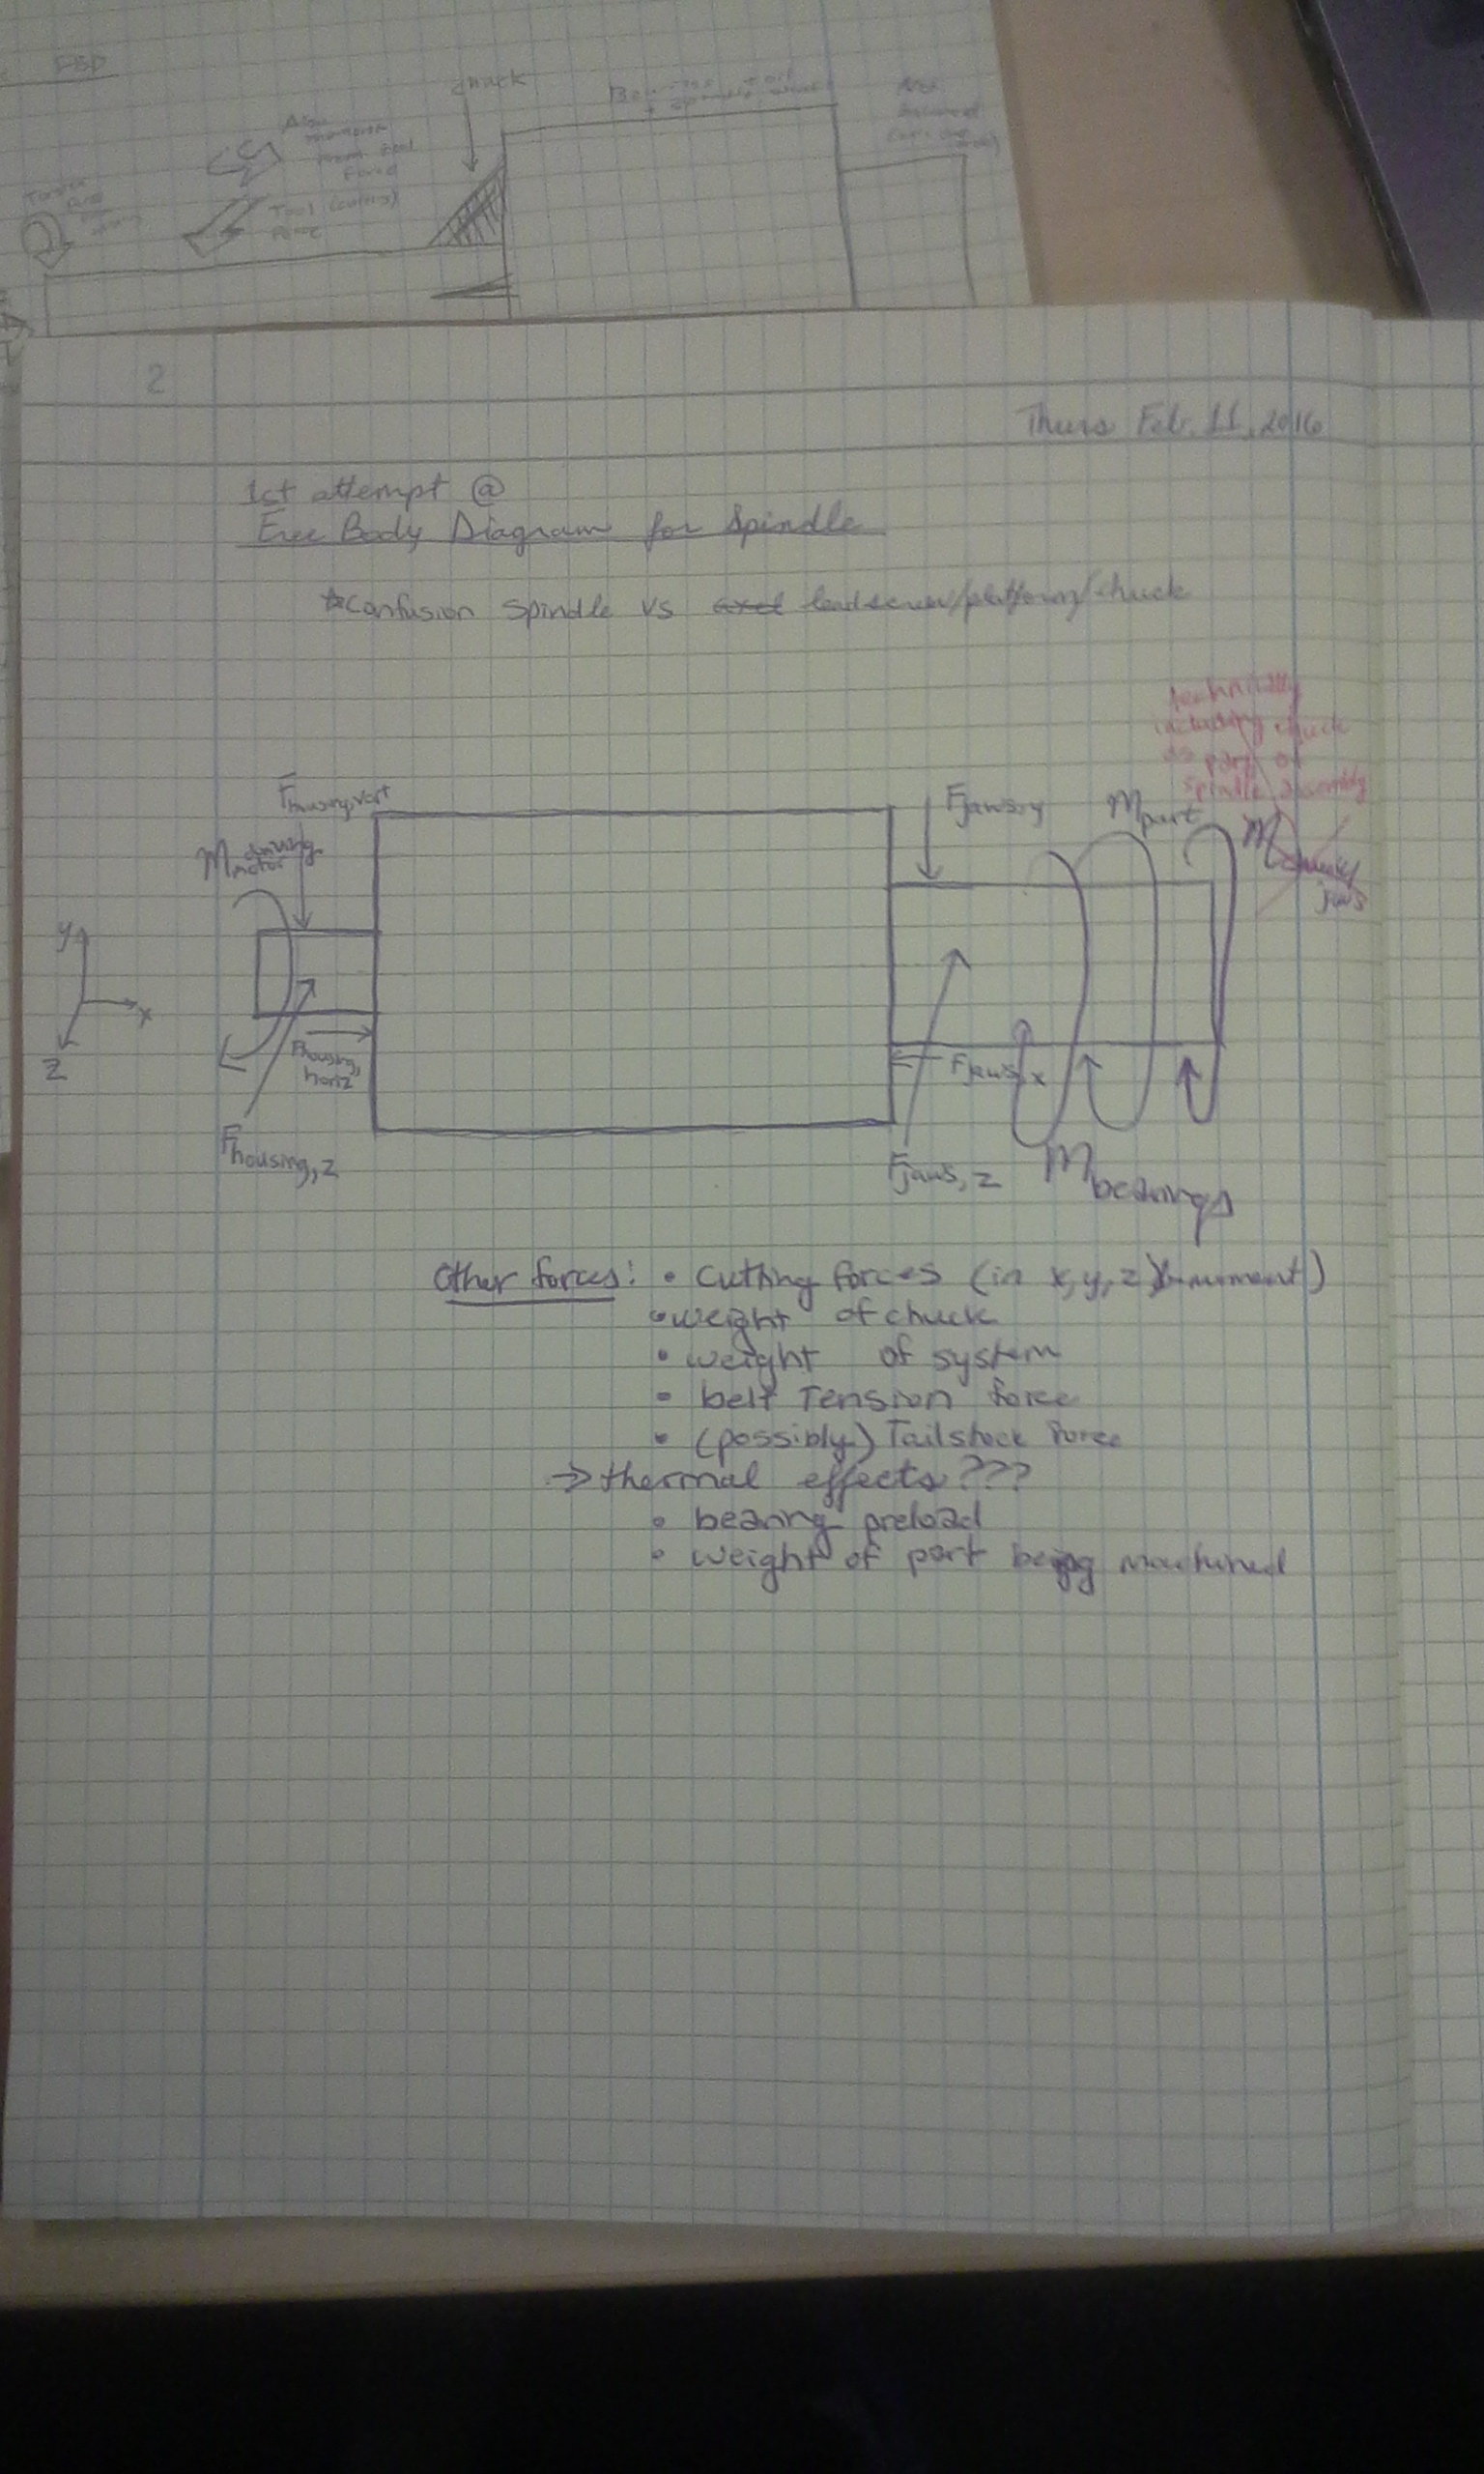 FBD
chuck
Also
moment
from tool
force
Tool (cutting)
force
2
Thurs Feb. 11, 2016
1st attempt @
Free Body Diagram for Spindle
*Confusion spindle vs axel leadscrew/platform/chuck
technically
including chuck
as part of
spindle assembly
Fhousing,vert
Mdriving
motor
Fjaws,y
Mpart
Mchuck/
jaws
y
x
z
Fhousing,
horiz
Fjaws,x
Fhousing,z
Fjaws,z
Mbearings
Other forces: • Cutting forces (in x,y,z & moment)
• weight of chuck
• weight of system
• belt Tension force
• (possibly) Tailstock force
→ thermal effects???
• bearing preload
• weight of part being machined